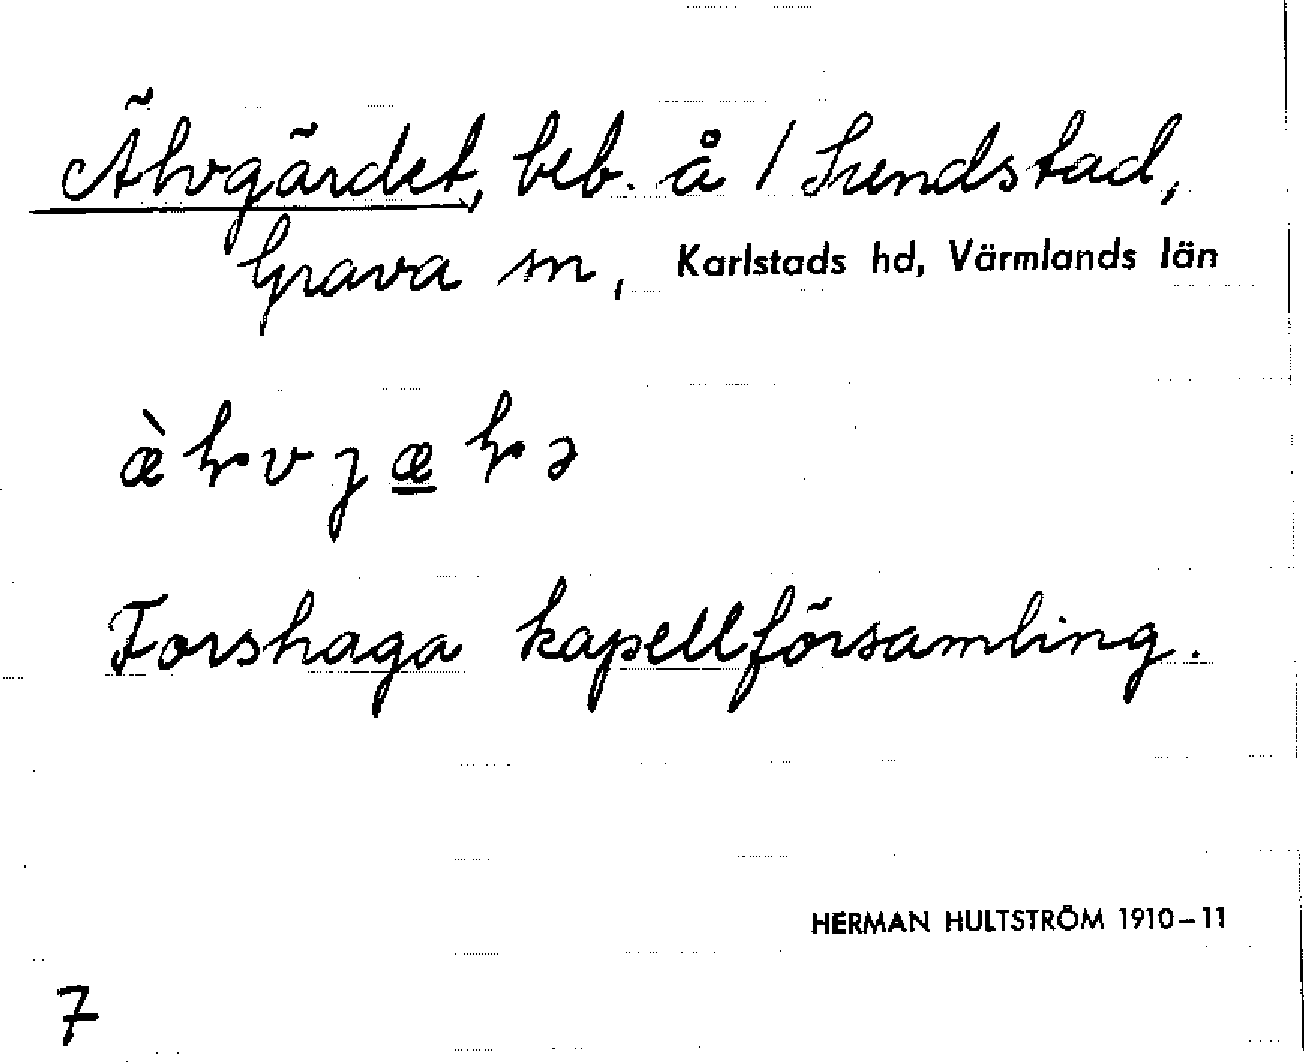 Älvgärdet, beb. å 1 Sundstad,
Grava sn, Karlstads hd, Värmlands län
Forshaga kapellförsamling.
HERMAN HULTSTRÖM 1910–11
7